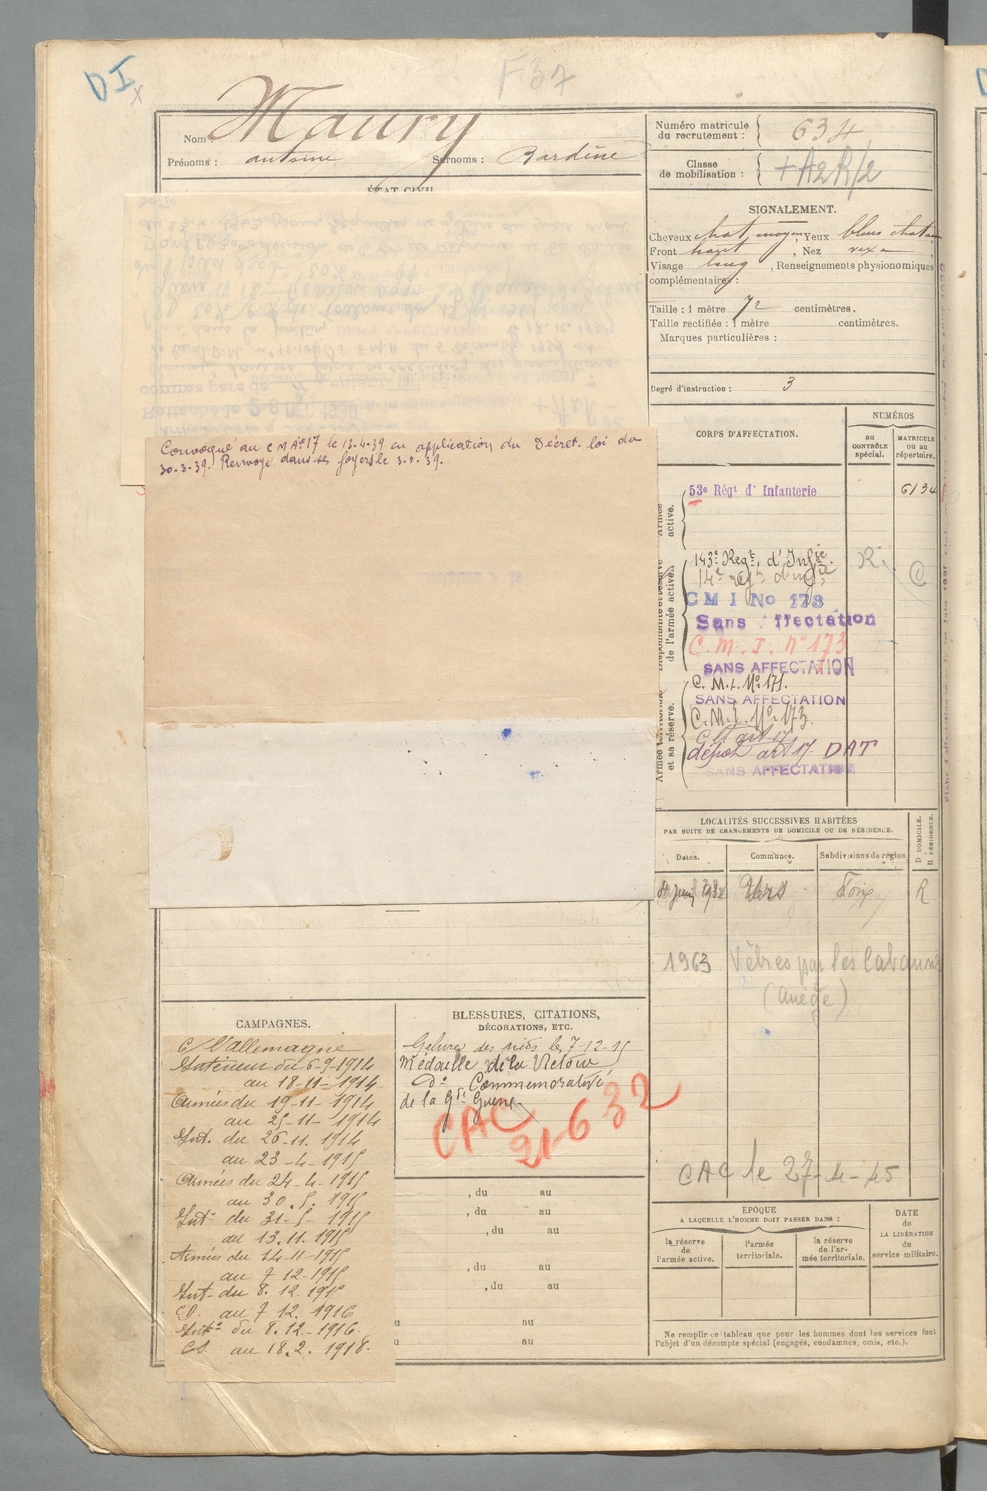 DI
F37
Nom : Maury
Prénoms : antoine Surnoms : Bardine
ÉTAT CIVIL
Convoqué au C M A n° 17 le 13-4-39 en application du Décret-loi du
30-3-39. Renvoyé dans ses foyers le 3-5-39.
CAMPAGNES.
C/ l'allemagne
Intérieur du 6-9-1914
au 18-11-1914
Armées du 19-11-1914
au 25-11-1914
Int. du 26-11.1914
au 23-4-1915
Armées du 24-4-1915
au 30.5.1915
Intr du 31-5-1915
au 13.11.1915
Armées du 14-11-1915
au 7 12-1915
Int- du 8.12.1915
au 7 12. 1916
Intr du 8.12-1916
au 18.2.1918.
BLESSURES, CITATIONS,
DÉCORATIONS, ETC.
Gelures des pieds le 7-12-15
Médaille de la Victoire
do Commémorative
de la gde Guerre
CAC
21-6 32
, du au
, du au
, du au
, du au
, du au
au
au
Numéro matricule
du recrutement : 634
Classe
de mobilisation : + A2R/2
SIGNALEMENT.
Cheveux chat. moyen, Yeux bleus
Front haut, Nez
Visage long, Renseignements physionomiques
complémentaires :
Taille : 1 mètre 72 centimètres.
Taille rectifiée : 1 mètre centimètres.
Marques particulières :
Degré d'instruction : 3
CORPS D'AFFECTATION.
NUMÉROS
AU CONTRÔLE spécial.
MATRICULE ou au répertoire.
53e Régt d' Infanterie 6134
143e Regt d'Infie. R.
14e regt d'infie C
C M I No 173
Sans ffectation
C.M.I. n° 173
SANS AFFECTATION
C.M.I. No 171.
SANS AFFECTATION
C.M.I. No 173.
dépôt art 17 DAT
SANS AFFECTATION
LOCALITÉS SUCCESSIVES HABITÉES
PAR SUITE DE CHANGEMENTS DE DOMICILE OU DE RÉSIDENCE.
Dates. Communes. Subdivisions de région D DOMICILE. R RÉSIDENCE.
1932 Foix R
1963 Vèbres par les Cabannes
(Ariège)
CAC le 27-4-45
EPOQUE
A LAQUELLE L'HOMME DOIT PASSER DANS :
la réserve de l'armée active.
l'armée territoriale.
la réserve de l'armée territoriale.
DATE
de
LA LIBÉRATION
du
service militaire.
Ne remplir ce tableau que pour les hommes dont les services font
l'objet d'un décompte spécial (engagés, condamnés, omis, etc.).